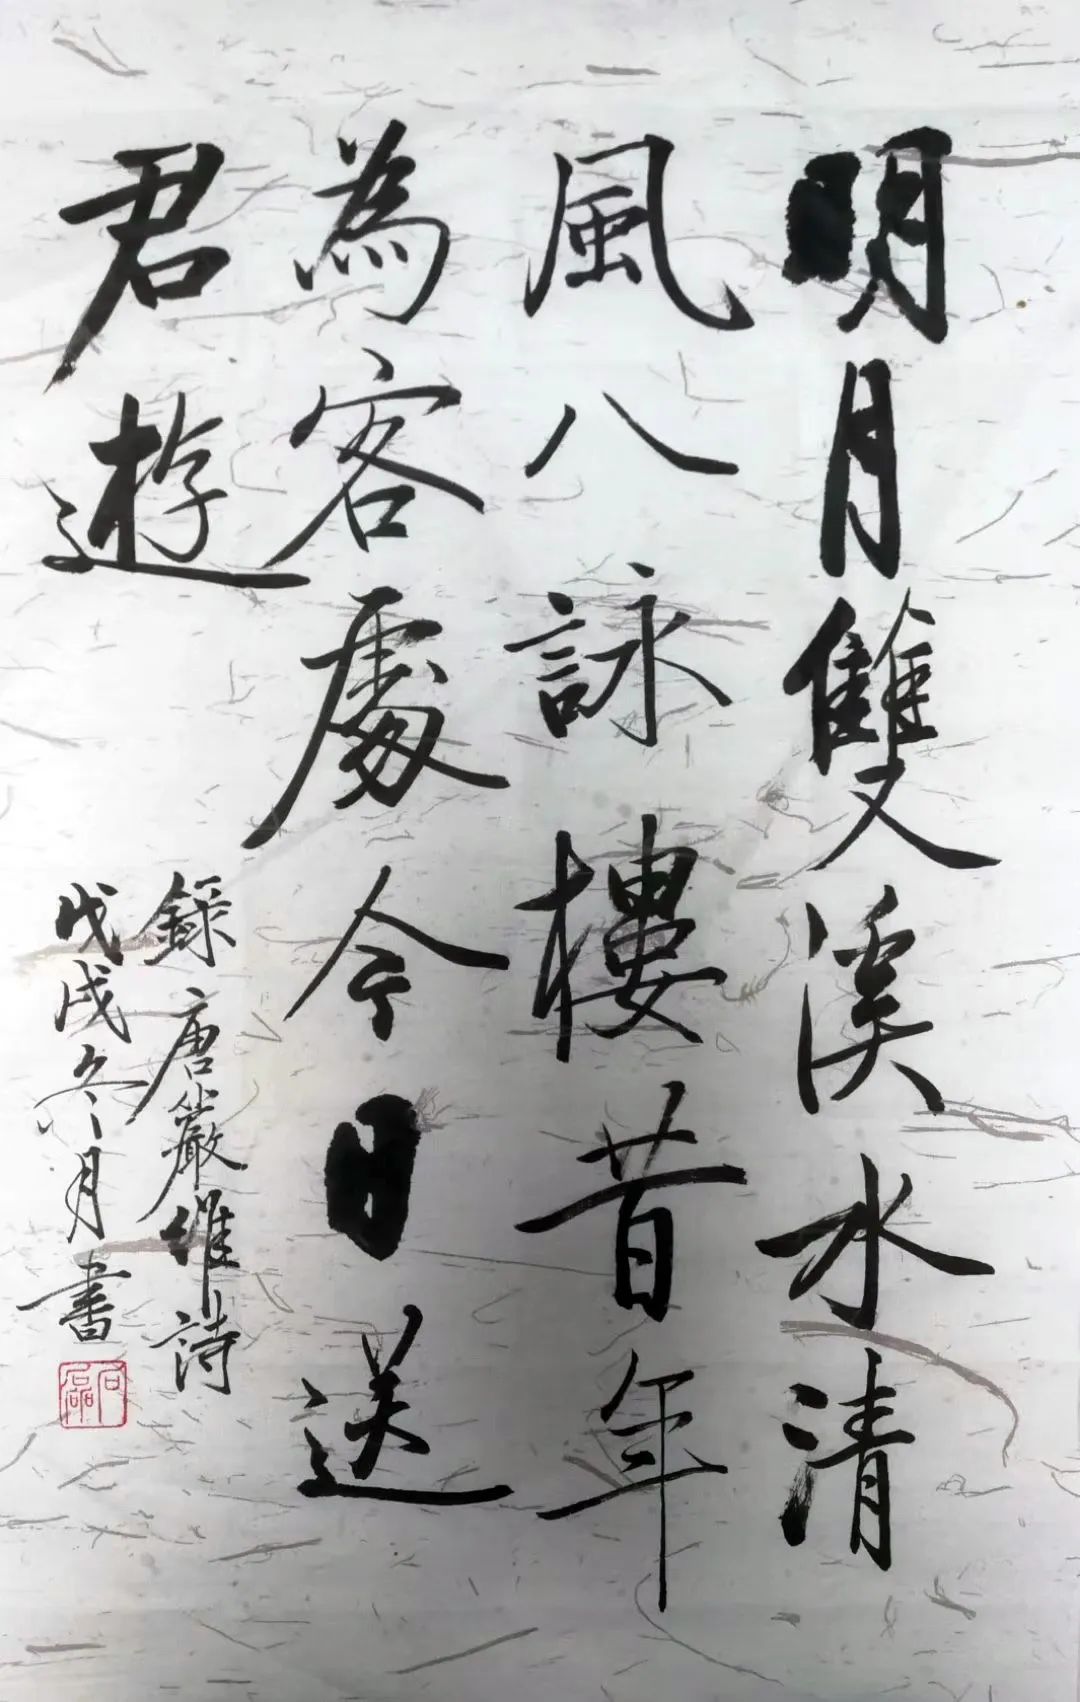 明月雙溪水清
風八詠樓昔年
為客處今日送
君遊
録唐嚴維詩
戊戌冬月書